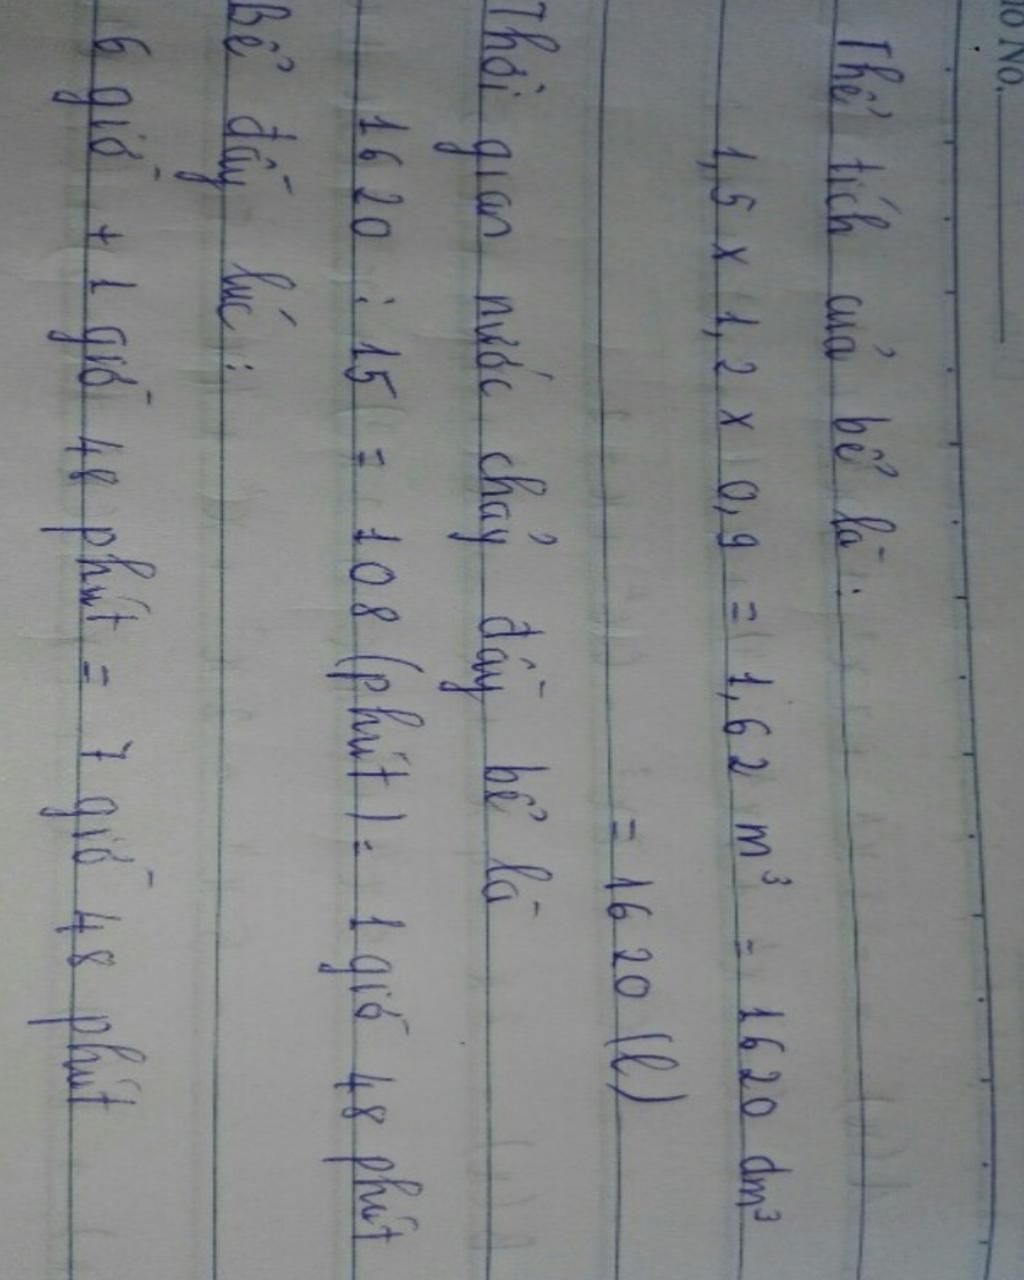 No.
Thể tích của bể là:
1,5 x 1,2 x 0,9 = 1,62 m³ = 1620 dm³
= 1620 (l)
Thời gian nước chảy đầy bể là
1620 : 15 = 108 (phút) = 1 giờ 48 phút
Bể đầy lúc:
6 giờ + 1 giờ 48 phút = 7 giờ 48 phút